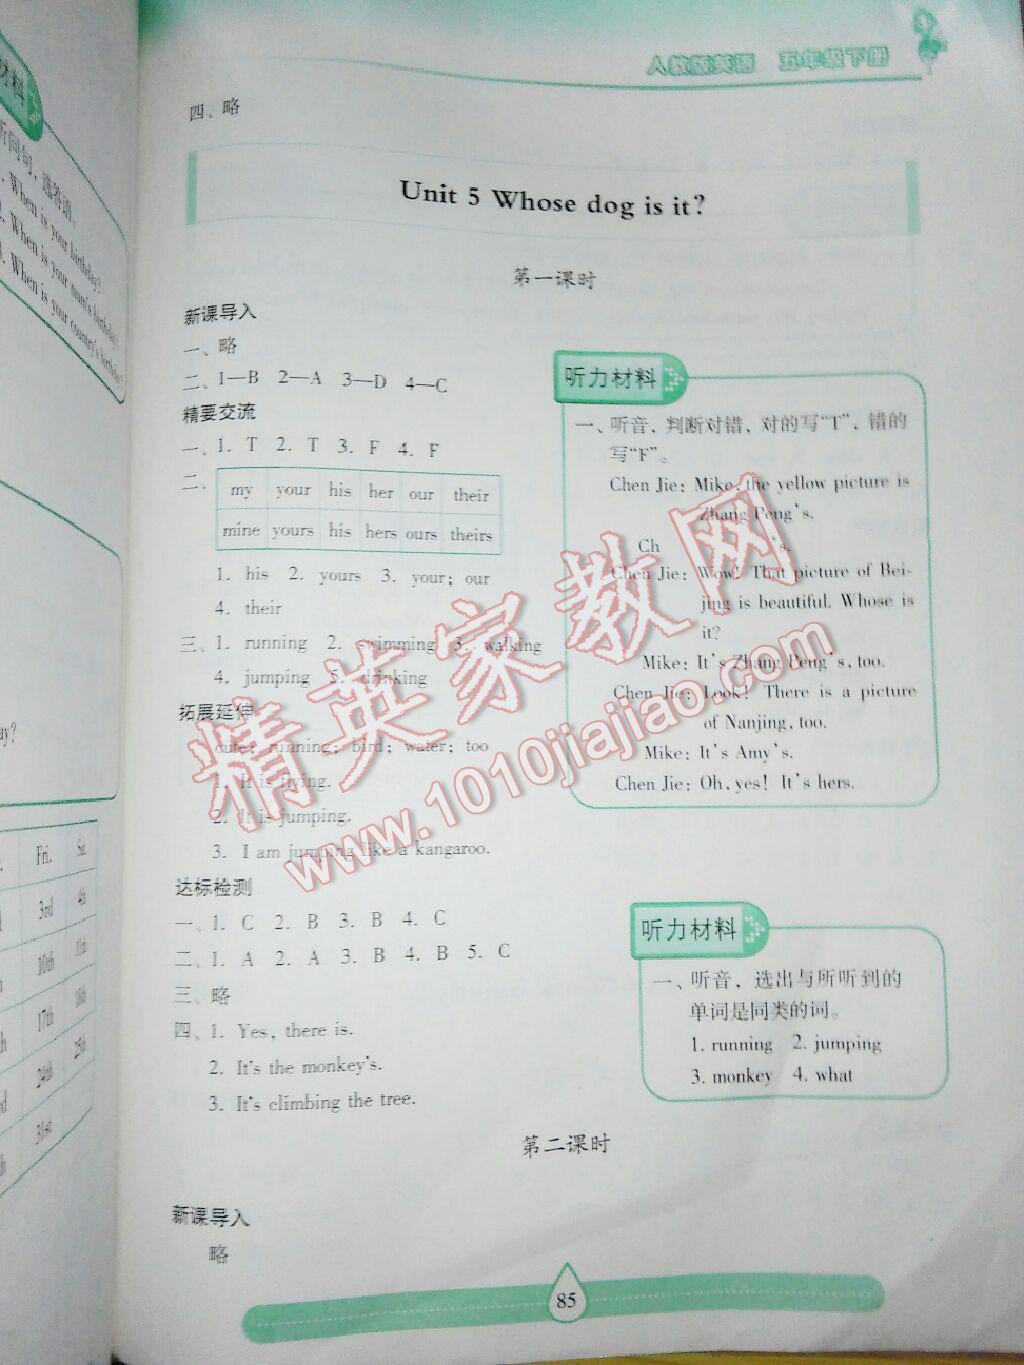 人教版英语 五年级下册
四、略
Unit 5 Whose dog is it?
第一课时
新课导入
一、略
二、1—B 2—A 3—D 4—C
精要交流
一、1. T 2. T 3. F 4. F
二、
my your his her our their
mine yours his hers ours theirs
1. his 2. yours 3. your; our
4. their
三、1. running 2. swimming 3. walking
4. jumping 5. drinking
拓展延伸
cute; running; bird; water; too
1. It is flying.
2. It is jumping.
3. I am jumping like a kangaroo.
达标检测
一、1. C 2. B 3. B 4. C
二、1. A 2. A 3. B 4. B 5. C
三、略
四、1. Yes, there is.
2. It's the monkey's.
3. It's climbing the tree.
听力材料
一、听音，判断对错，对的写“T”，错的
写“F”。
Chen Jie: Mike, the yellow picture is
Zhang Peng's.
Ch 's.
Chen Jie: Wow! That picture of Bei-
jing is beautiful. Whose is
it?
Mike: It's Zhang Peng's, too.
Chen Jie: Look! There is a picture
of Nanjing, too.
Mike: It's Amy's.
Chen Jie: Oh, yes! It's hers.
听力材料
一、听音，选出与所听到的
单词是同类的词。
1. running 2. jumping
3. monkey 4. what
第二课时
新课导入
略
85
精英家教网
www.1010jiajiao.com
材料
听问句，选答语。
When is your birthday?
When is your mum's birthday?
When is your country's birthday?
ay?
Fri. Sat.
3rd 4th
10th 11th
17th 18th
24th 25th
31st